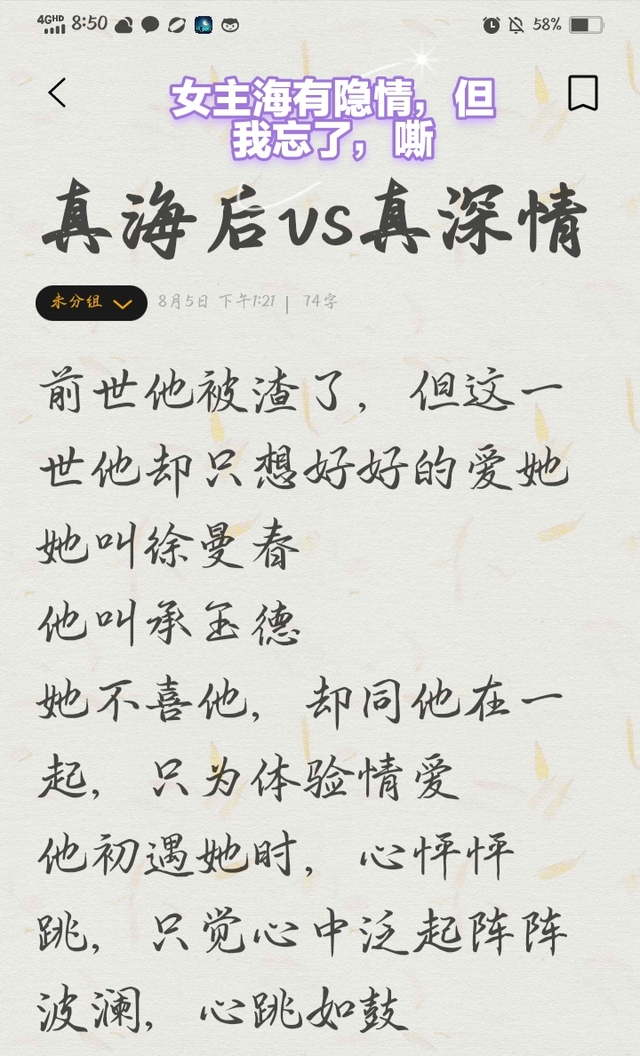 4GHD 8:50 58%
女主海有隐情，但
我忘了，嘶
真海后vs真深情
未分组 8月5日 下午1:21 | 74字
前世他被渣了，但这一
世他却只想好好的爱她
她叫徐曼春
他叫承玉德
她不喜他，却同他在一
起，只为体验情爱
他初遇她时，心怦怦
跳，只觉心中泛起阵阵
波澜，心跳如鼓